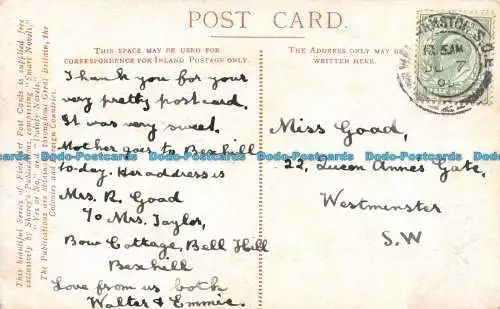 POST CARD.
THIS SPACE MAY BE USED FOR
CORRESPONDENCE FOR INLAND POSTAGE ONLY.
THE ADDRESS ONLY MAY BE
WRITTEN HERE.
This beautiful Series of Fine Art Post Cards is supplied free
exclusively by Shurey's Publications, comprising "Smart Novels,"
"Yes or No," and "Dainty Novels."
The Publications are obtainable throughout Great Britain, the
Colonies and Foreign Countries.
Thank you for your
very pretty postcard.
It was very sweet.
Mother goes to Bexhill
to-day. Her address is
Mrs. R. Goad
℅ Mrs. Taylor,
Bow Cottage, Bell Hill
Bexhill
Love from us both
Walter & Emmie.
Miss Goad,
22, Queen Annes Gate,
Westminster
S.W
JU 7
Dodo-Postcards Dodo-Postcards Dodo-Postcards